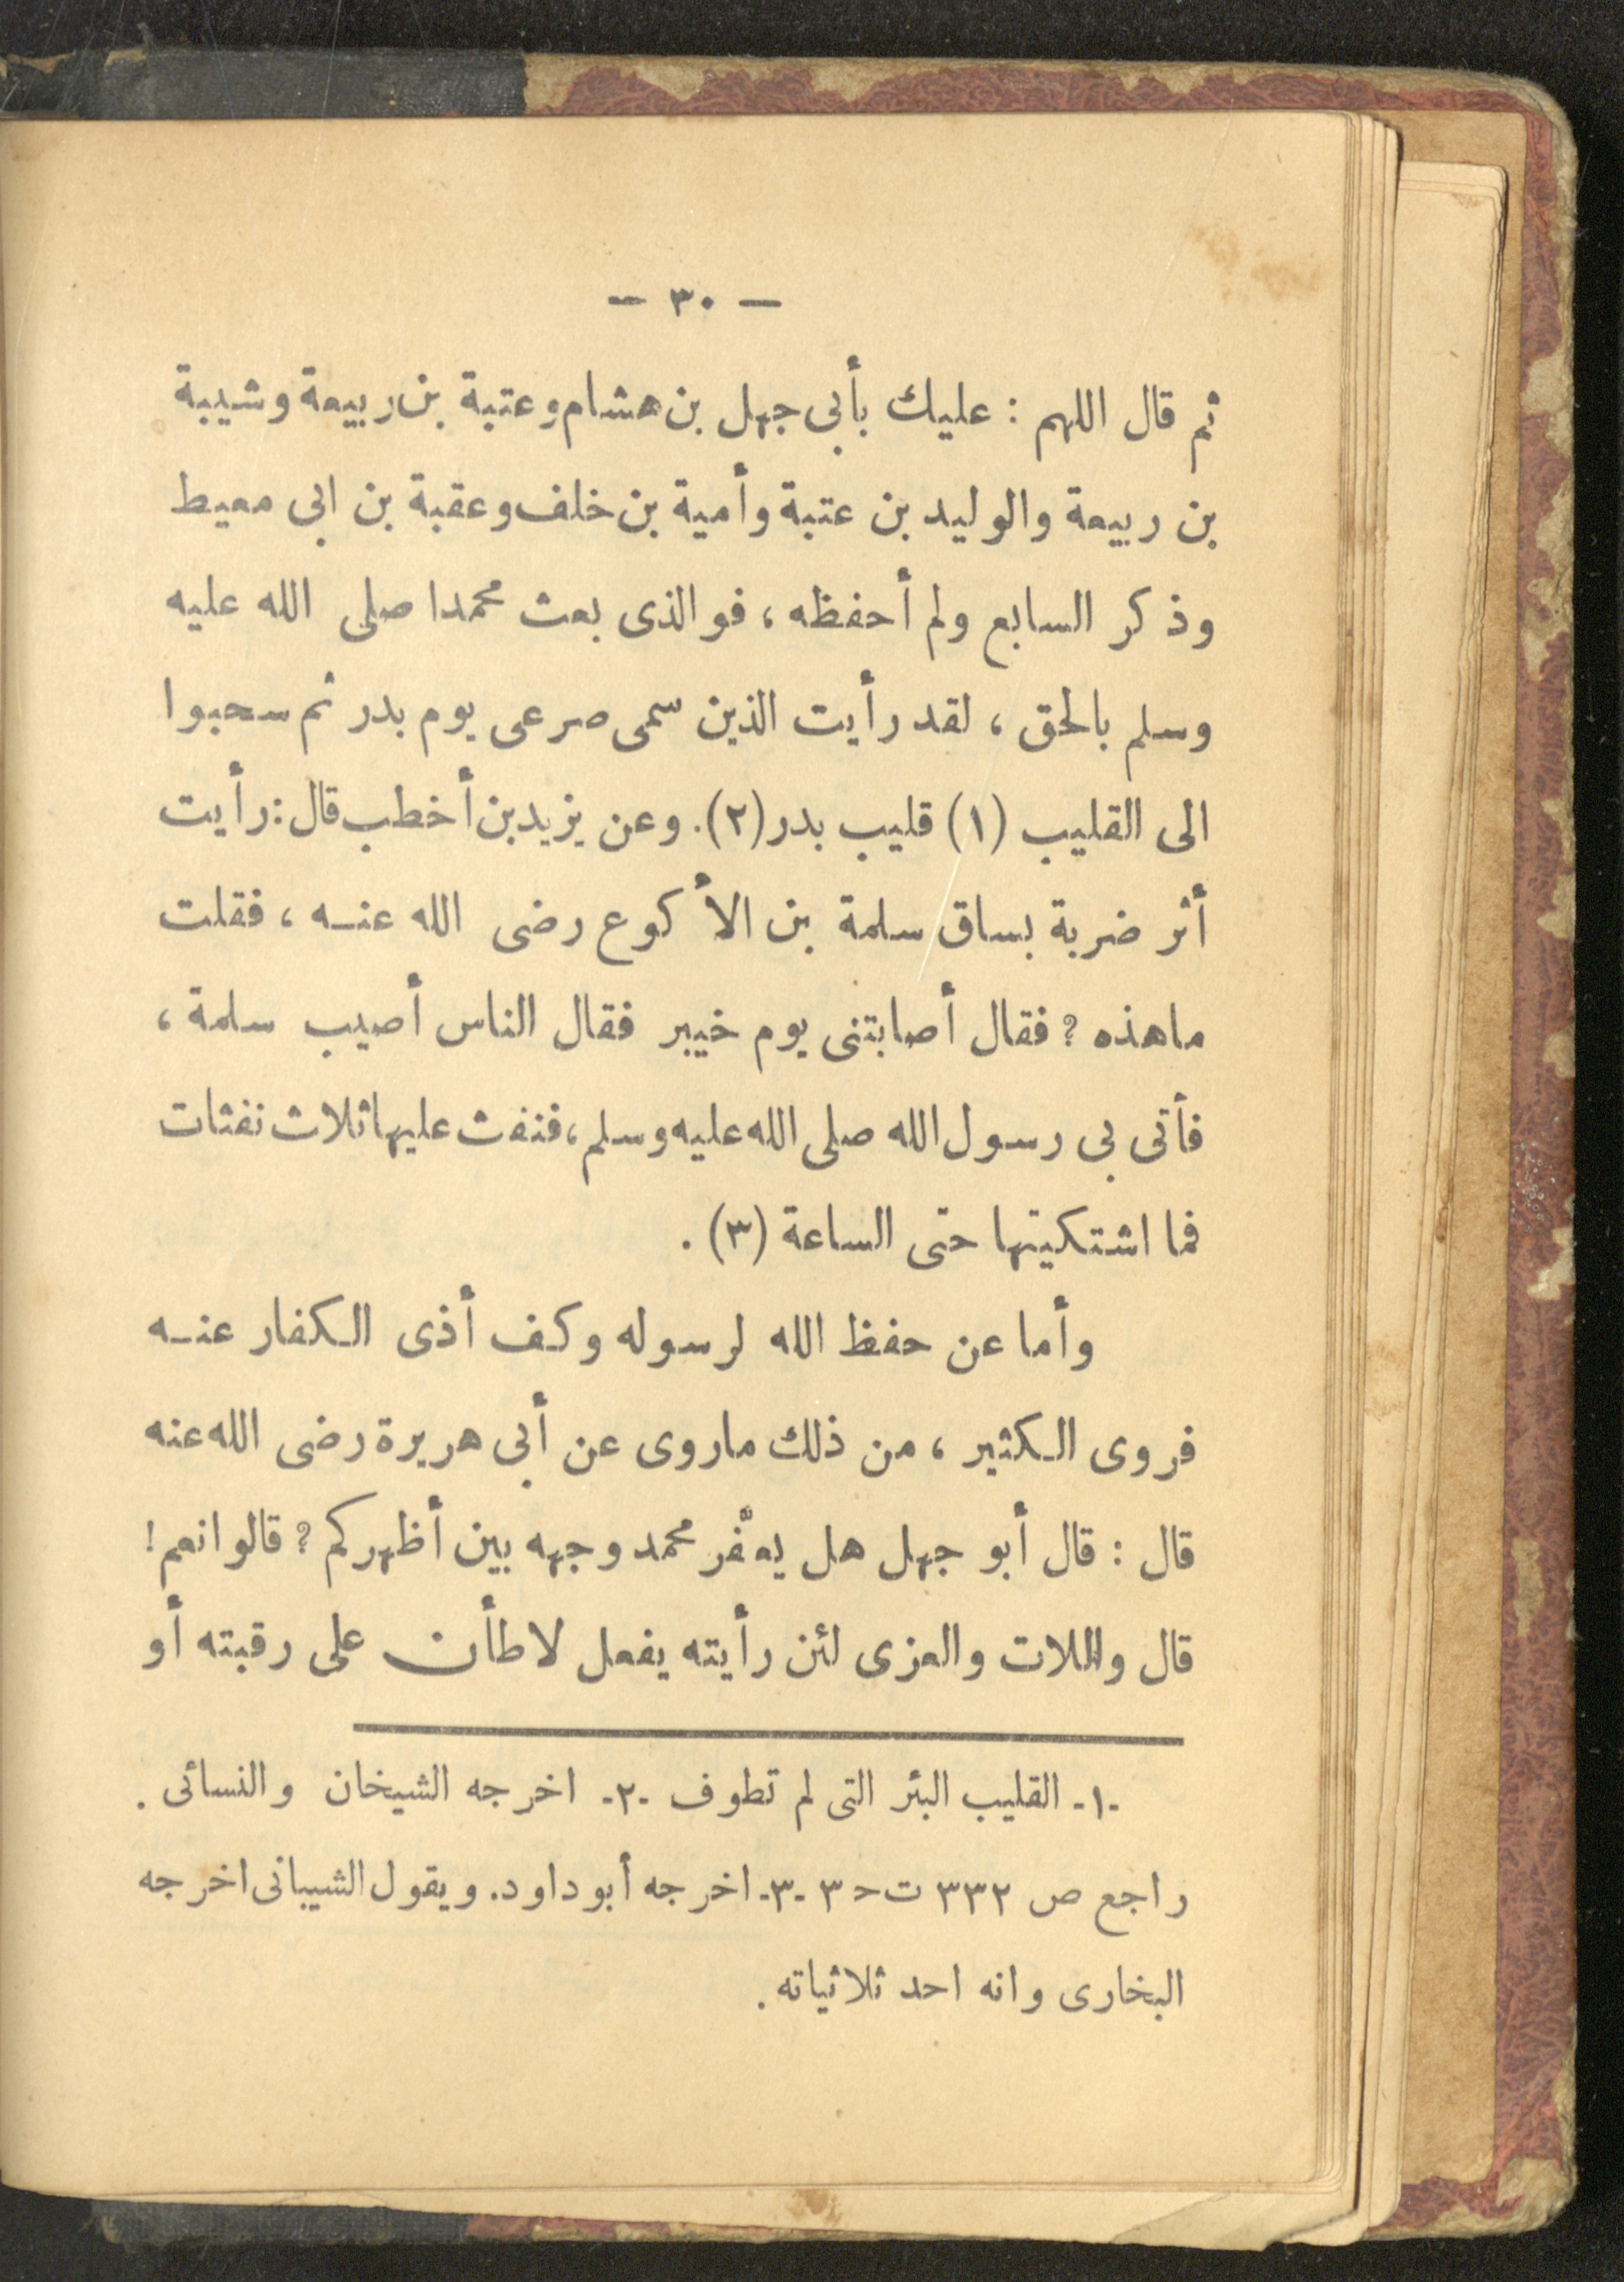 — ٣٠ —
ثم قال اللهم : عليك بأبى جهل بن هشام وعتبة بن ربيعة وشيبة
بن ربيعة والوليد بن عتبة وأمية بن خلف وعقبة بن ابى معيط
وذكر السابع ولم أحفظه ، فو الذى بعث محمدا صلى الله عليه
وسلم بالحق ، لقد رأيت الذين سمى صرعى يوم بدر ثم سحبوا
الى القليب (١) قليب بدر (٢). وعن يزيد بن أخطب قال : رأيت
أثر ضربة بساق سلمة بن الأكوع رضى الله عنــه ، فقلت
ماهذه ؟ فقال أصابتنى يوم خيبر فقال الناس أصيب سلمة ،
فأتى بى رسول الله صلى الله عليه وسلم ، فنفث عليها ثلاث نفثات
فما اشتكيتها حتى الساعة (٣) .
وأما عن حفظ الله لرسوله وكف أذى الـكفار عنــه
فروى الـكثير ، من ذلك ماروى عن أبى هريرة رضى الله عنه
قال : قال أبو جهل هل يعفّر محمد وجهه بين أظهركم ؟ قالوا نعم !
قال واللات والعزى لئن رأيته يفعل لاطأن على رقبته أو
-١- القليب البئر التى لم تطوف -٢- اخرجه الشيخان والنسائى .
راجع ص ٣٣٢ ت ح ٣ -٣- اخرجه أبو داود. ويقول الشيبانى اخرجه
البخارى وانه احد ثلاثياته .